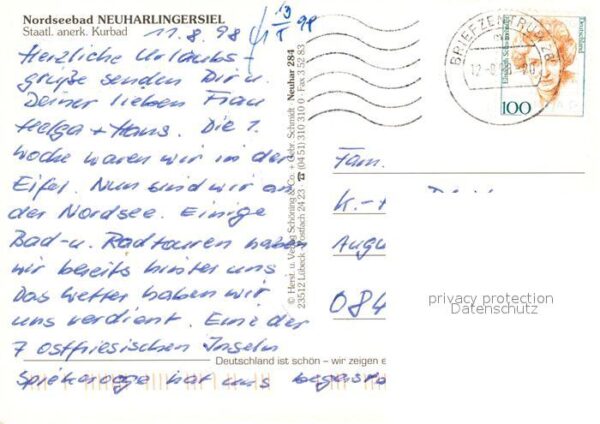 Nordseebad NEUHARLINGERSIEL
Staatl. anerk. Kurbad
11.8.98
13/8 98
Herzliche Urlaubs-
grüße senden Dir u.
Deiner lieben Frau
Helga + Hans. Die 1.
Woche waren wir in der
Eifel. Nun sind wir an
der Nordsee. Einige
Bad- u. Radtouren haben
wir bereits hinter uns
Das Wetter haben wir
uns verdient. Eine der
7 ostfriesischen Inseln
Spiekerooge hat uns
© Herst. u. Verlag Schöning & Co. + Gebr. Schmidt · Neuhar 284
23512 Lübeck · Postfach 24 23 · ☎ (04 51) 310 310 0 · Fax 3 52 83
Deutschland ist schön – wir zeigen e
BRIEFZENTRUM 26
Deutschland
100
Fam.
K.-
Augu
084
privacy protection
Datenschutz